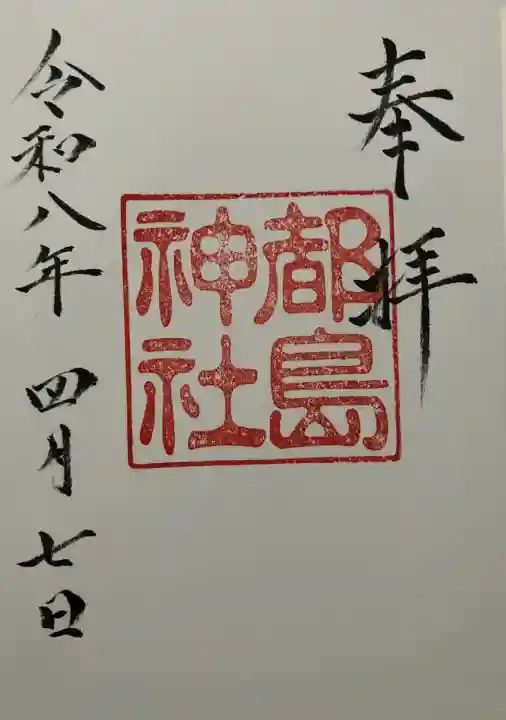 奉拝
都島
神社
令和八年四月七日